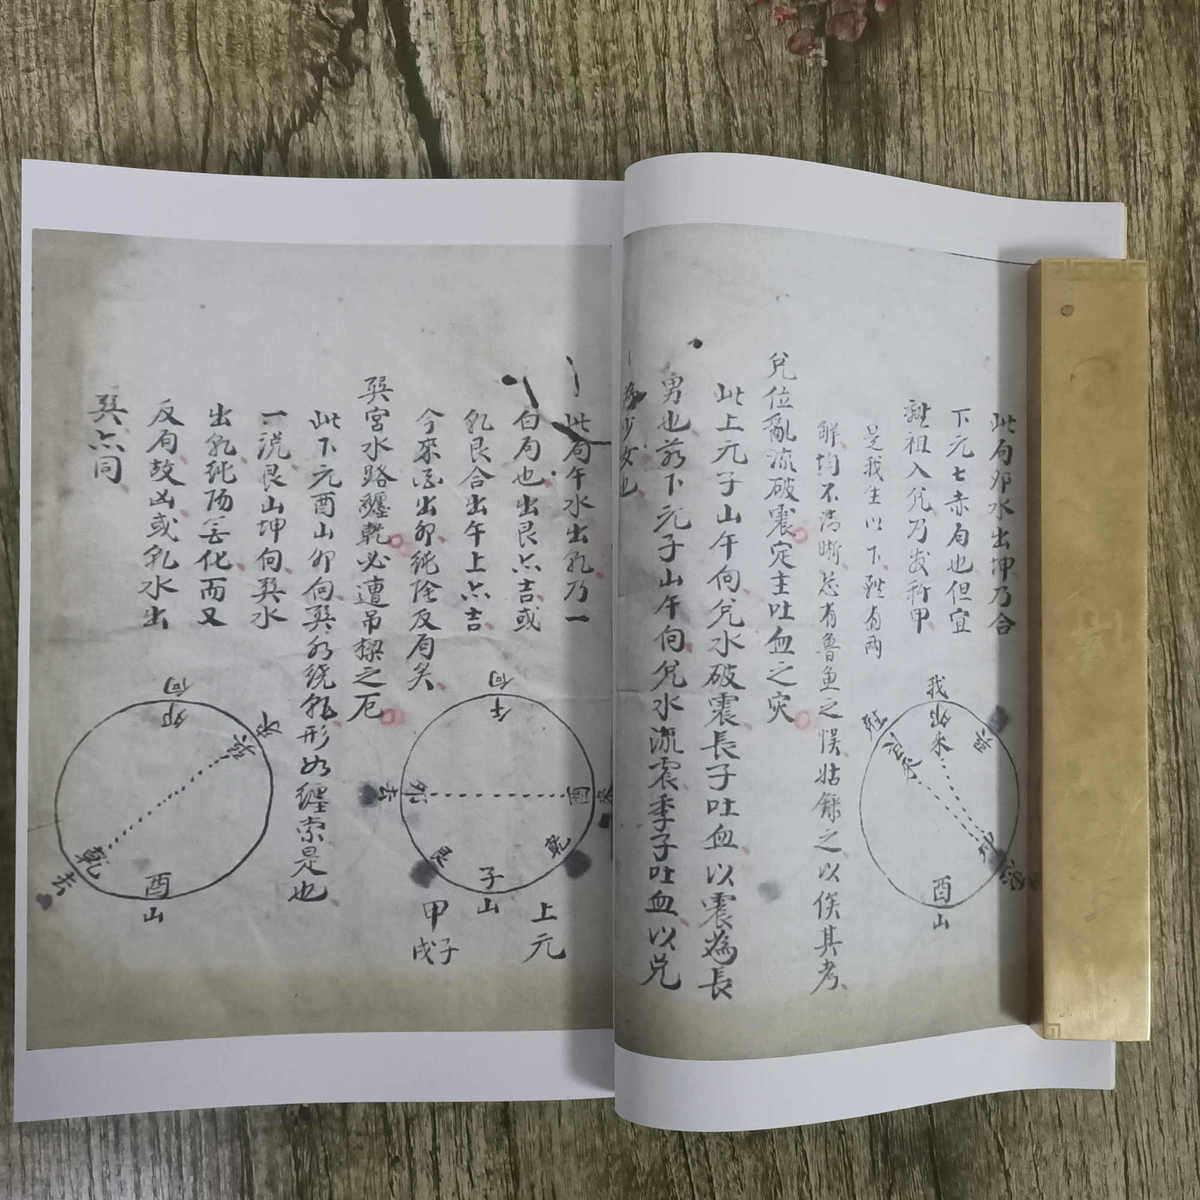 此局卯水出坤乃合
下元七赤局也但宜
祖入兊乃发
是我生以下有两
解均不清晰恐有魯魚之悮姑錄之以俟其考
我
酉
山
兊位亂流破震定主吐血之灾
此上元子山午向兊水破震長子吐血以震為長
男也若下元子山午向兊水流震季子吐血以兊
為少女也
此局午水出乹乃一
白局也出艮亦吉或
乹艮合出午上亦吉
今來酉出卯純陰反局矣
午
酉
乾
子
山
艮
卯
去
上元
甲子
戍
巽宮水路纒乾必遭吊樑之厄
此下元酉山卯向巽水繞乹形如纒索是也
一説艮山坤向巽水
出乹純陽無化而又
反局故凶或乹水出
巽亦同
向
卯
水
流
乾
去
酉
山